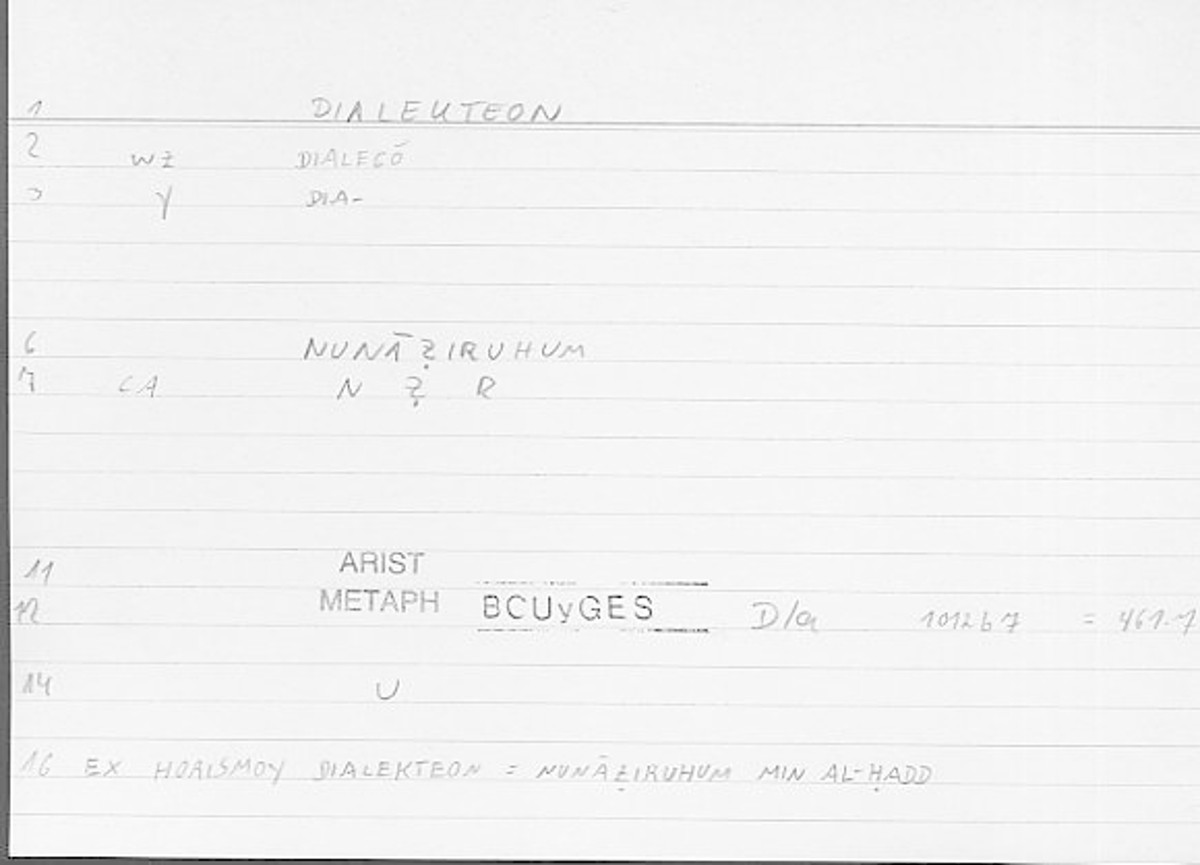 1 DIALEKTEON
2 WZ DIALEGŌ
3 Y DIA-
6 NUNĀẒIRUHUM
7 CA N Ẓ R
11 ARIST
12 METAPH BCUyGES D/a 1012b7 = 461.7
14 U
16 EX HORISMOY DIALEKTEON = NUNĀẒIRUHUM MIN AL-ḤADD